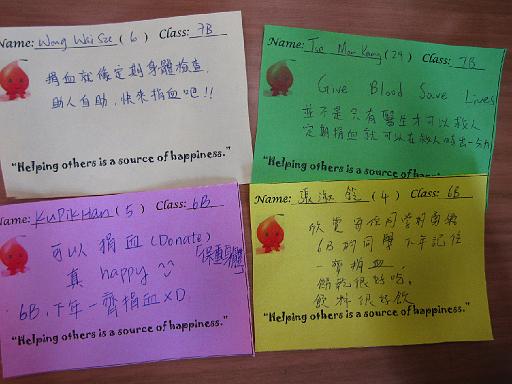 Name: Wong Wai Sze ( 6 ) Class: 7B
捐血就像定期身體檢查,
助人自助,快來捐血吧!!
"Helping others is a source of happiness."
Name: Tse Man Kang ( 24 ) Class: 7B
Give Blood Save Lives
並不是只有醫生才可以救人
定期捐血就可以在救人時出一分力
"Helping others is a source of happiness."
Name: Ku Pik Han ( 5 ) Class: 6B
可以捐血(Donate)
真 happy
「保重身體」
6B,下年一齊捐血XD
"Helping others is a source of happiness."
Name: 張淑 ( 4 ) Class: 6B
欣賞每位同學的勇氣
6B的同學下年記住
一齊捐血,
餅乾很好吃,
飲料很好飲
"Helping others is a source of happiness."